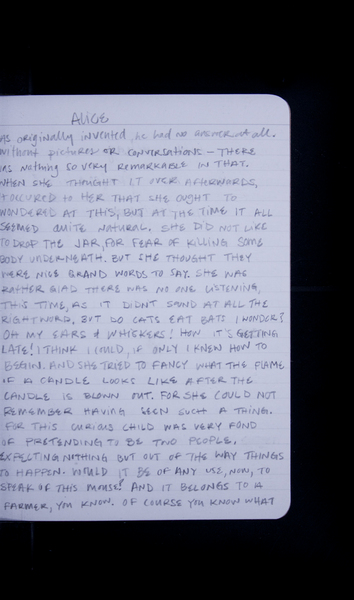 ALICE
as originally invented, he had no answer at all.
without pictures OR conversations – THERE
as nothing so very REMARKABLE IN THAT.
WHEN SHE THOUGHT IT OVER AFTERWARDS,
IT OCCURED TO HER THAT SHE OUGHT TO
WONDERED AT THIS, BUT AT THE TIME IT ALL
SEEMED QUITE NATURAL. SHE DID NOT LIKE
TO DROP THE JAR, FOR FEAR OF KILLING SOME
BODY UNDERNEATH. BUT SHE THOUGHT THEY
WERE NICE GRAND WORDS TO SAY. SHE WAS
RATHER GLAD THERE WAS NO ONE LISTENING,
THIS TIME, AS IT DIDN'T SOUND AT ALL THE
RIGHT WORD. BUT DO CATS EAT BATS I WONDER?
OH MY EARS & WHISKERS! HOW IT'S GETTING
LATE! I THINK I COULD, IF ONLY I KNEW HOW TO
BEGIN. AND SHE TRIED TO FANCY WHAT THE FLAME
OF A CANDLE LOOKS LIKE AFTER THE
CANDLE IS BLOWN OUT. FOR SHE COULD NOT
REMEMBER HAVING SEEN SUCH A THING.
FOR THIS CURIOUS CHILD WAS VERY FOND
OF PRETENDING TO BE TWO PEOPLE.
EXPECTING NOTHING BUT OUT OF THE WAY THINGS
TO HAPPEN. WOULD IT BE OF ANY USE, NOW, TO
SPEAK OF THIS MOUSE? AND IT BELONGS TO A
FARMER, YOU KNOW. OF COURSE YOU KNOW WHAT